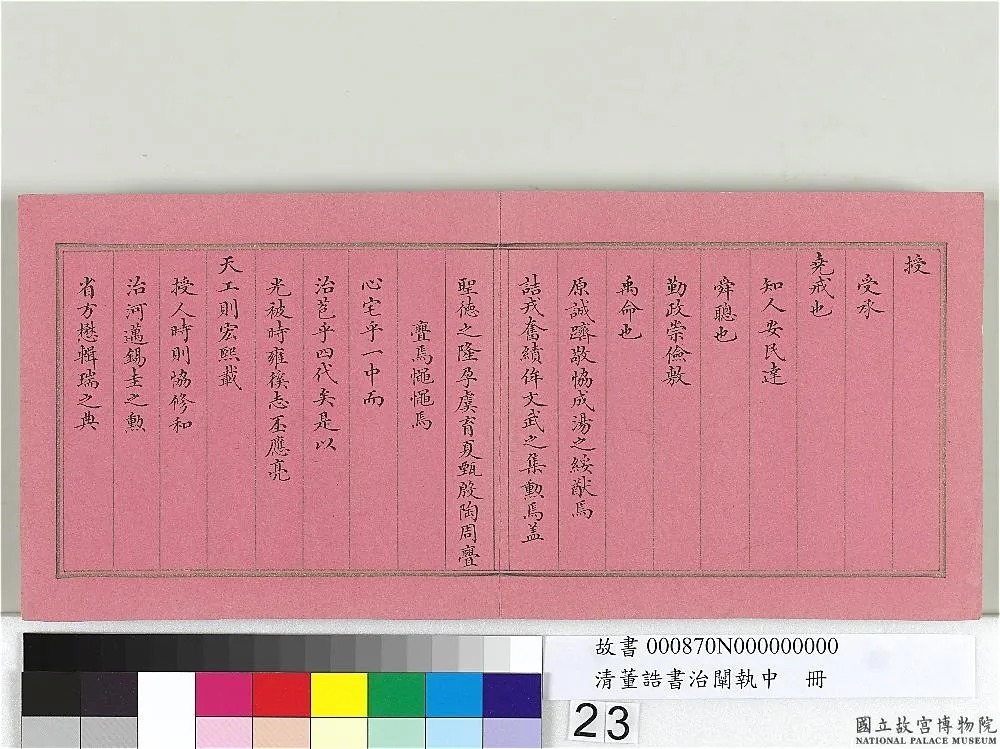 授
受承
堯戒也
知人安民達
舜聰也
勤政崇儉敷
禹命也
原誠躋敬恊成湯之綏猷焉
詰戎奮績侔文武之集勲焉盖
聖德之隆孕虞育夏甄殷陶周亹
亹焉慥慥焉
心宅乎一中而
治苞乎四代矣是以
光被時雍徯志丕應亮
天工則宏熙載
授人時則恊修和
治河邁錫圭之勲
省方懋輯瑞之典
故書 000870N000000000
清董誥書治闡執中 冊
23
國立故宮博物院
NATIONAL PALACE MUSEUM